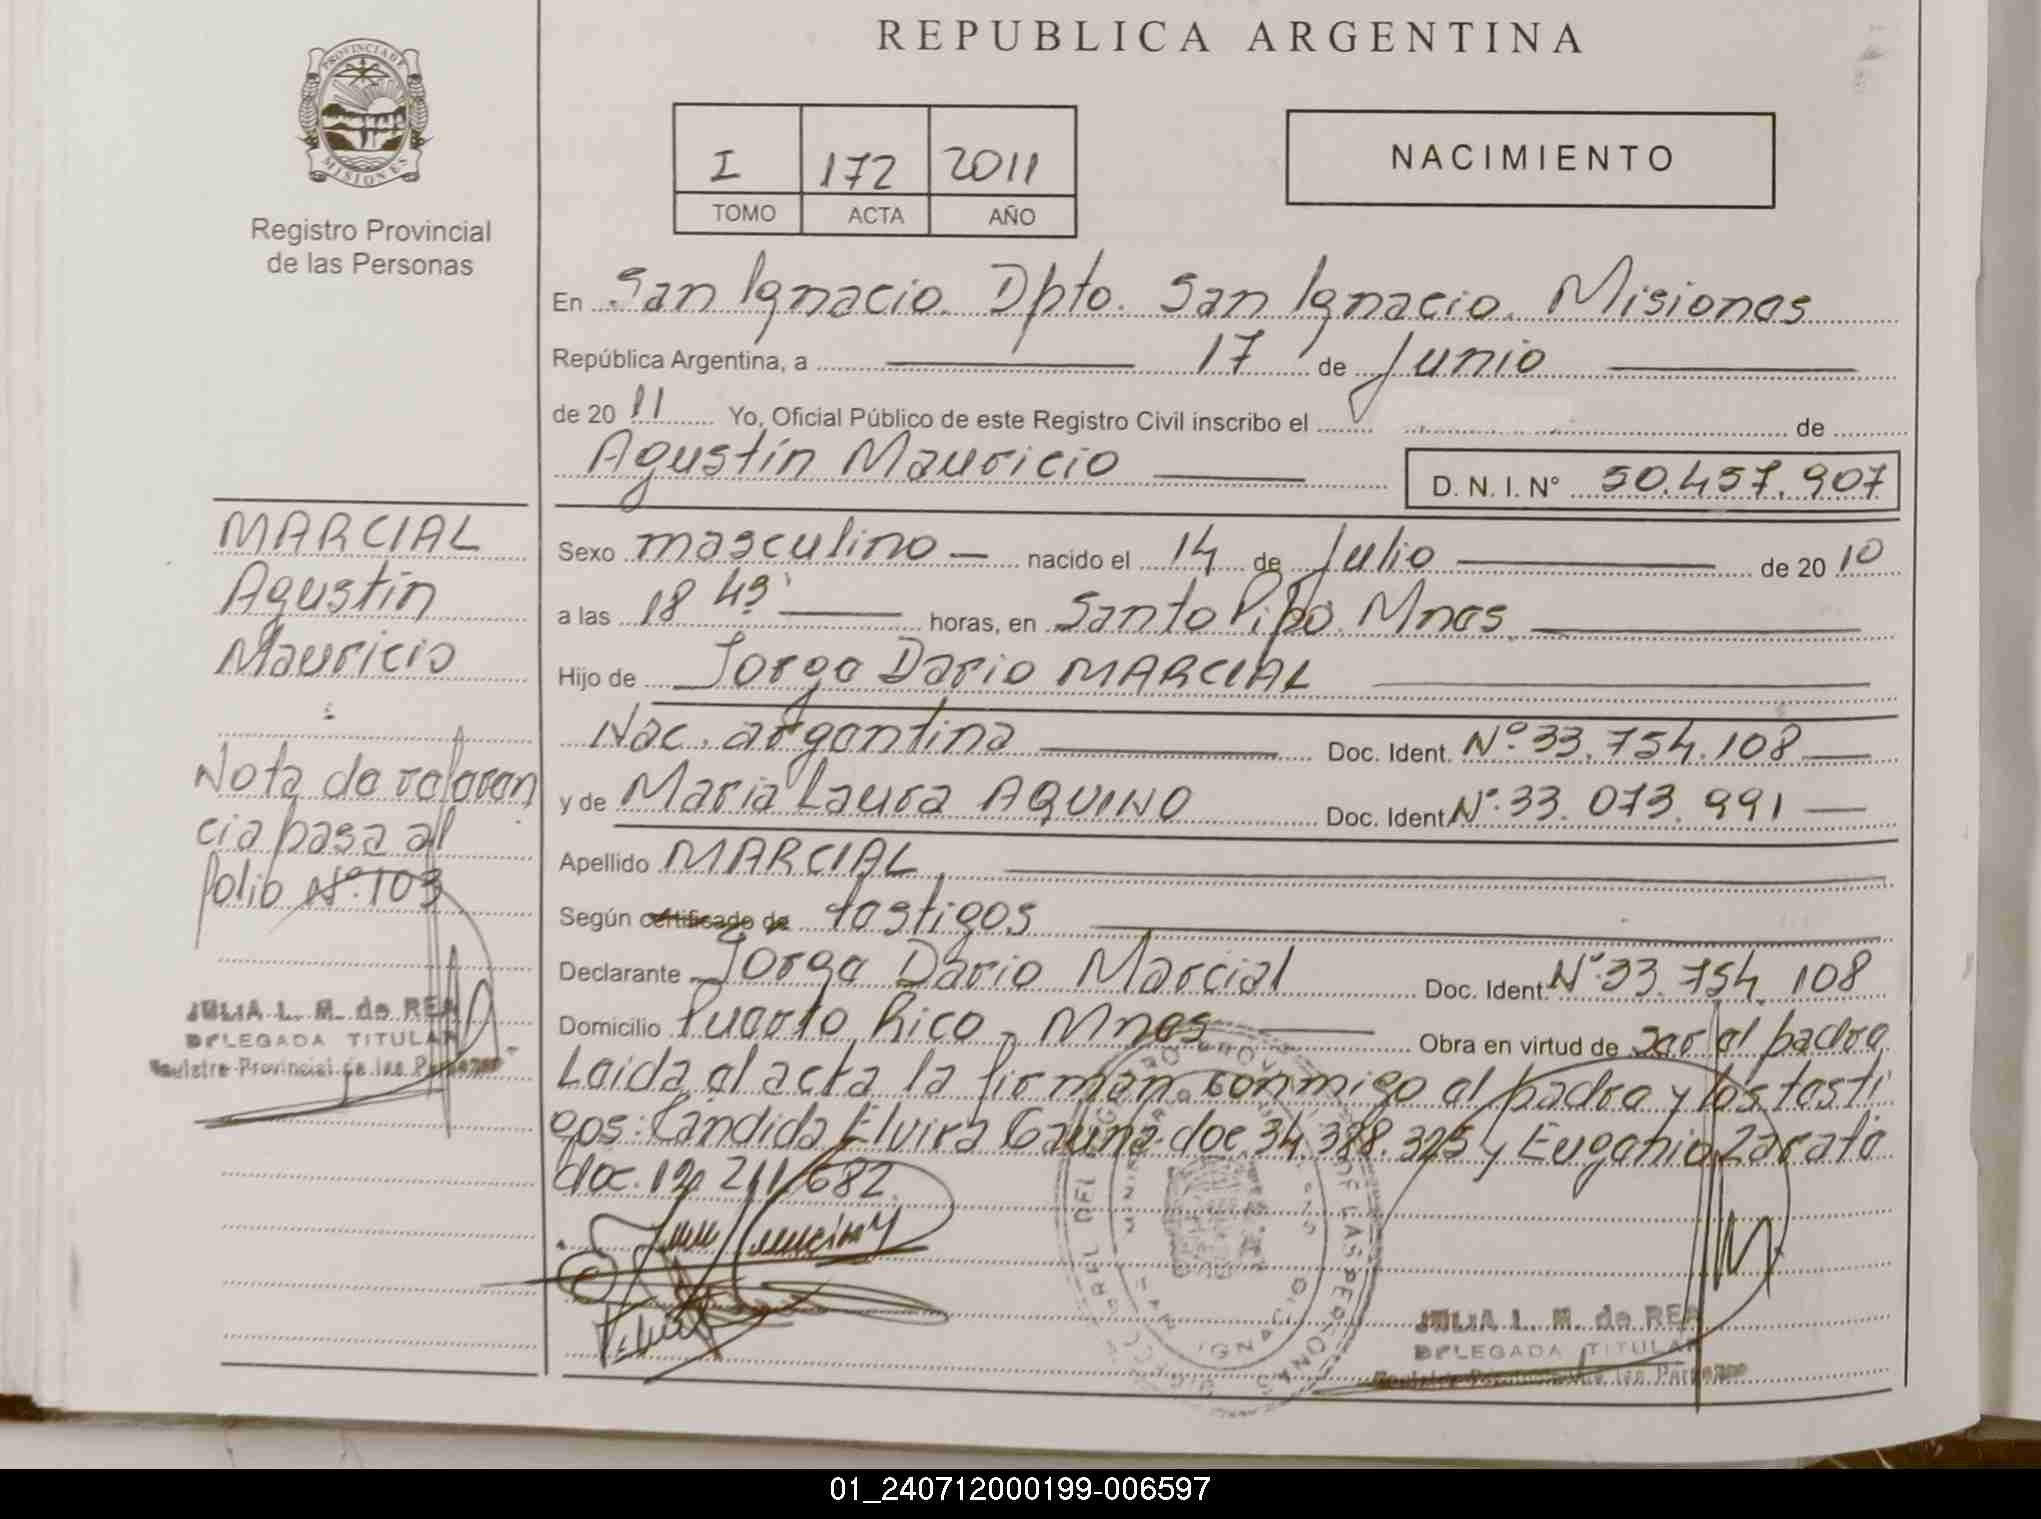 REPUBLICA ARGENTINA
PROVINCIA DE
MISIONES
Registro Provincial
de las Personas
I 172 2011
TOMO ACTA AÑO
NACIMIENTO
En San Ignacio. Dpto. San Ignacio. Misiones
República Argentina, a 17 de Junio
de 20 11 Yo, Oficial Público de este Registro Civil inscribo el de
Agustín Mauricio D. N. I. N° 50.457.907
Sexo masculino nacido el 14 de Julio de 20 10
a las 18 43' horas, en Santo Pipó. Mnes.
Hijo de Jorge Dario MARCIAL
Nac. argentina Doc. Ident. N° 33.754.108
y de Maria Laura AQUINO Doc. Ident. N° 33.073.991
Apellido MARCIAL
Según certificado de testigos
Declarante Jorge Dario Marcial Doc. Ident. N° 33.754.108
Domicilio Puerto Rico, Mnes Obra en virtud de ser el padre
Leida el acta la firman conmigo el padre y los testi
gos: Cándida Elvira Gauna doc. 34.388.325 y Eugenio Zarate
doc. 12.211.682
JULIA L. M. de REA
DELEGADA TITULAR
Registro Provincial de las Personas
MARCIAL
Agustín
Mauricio
Nota de referen
cia pasa al
folio N° 103
JULIA L. M. de REA
DELEGADA TITULAR
Registro Provincial de las Personas
01_240712000199-006597